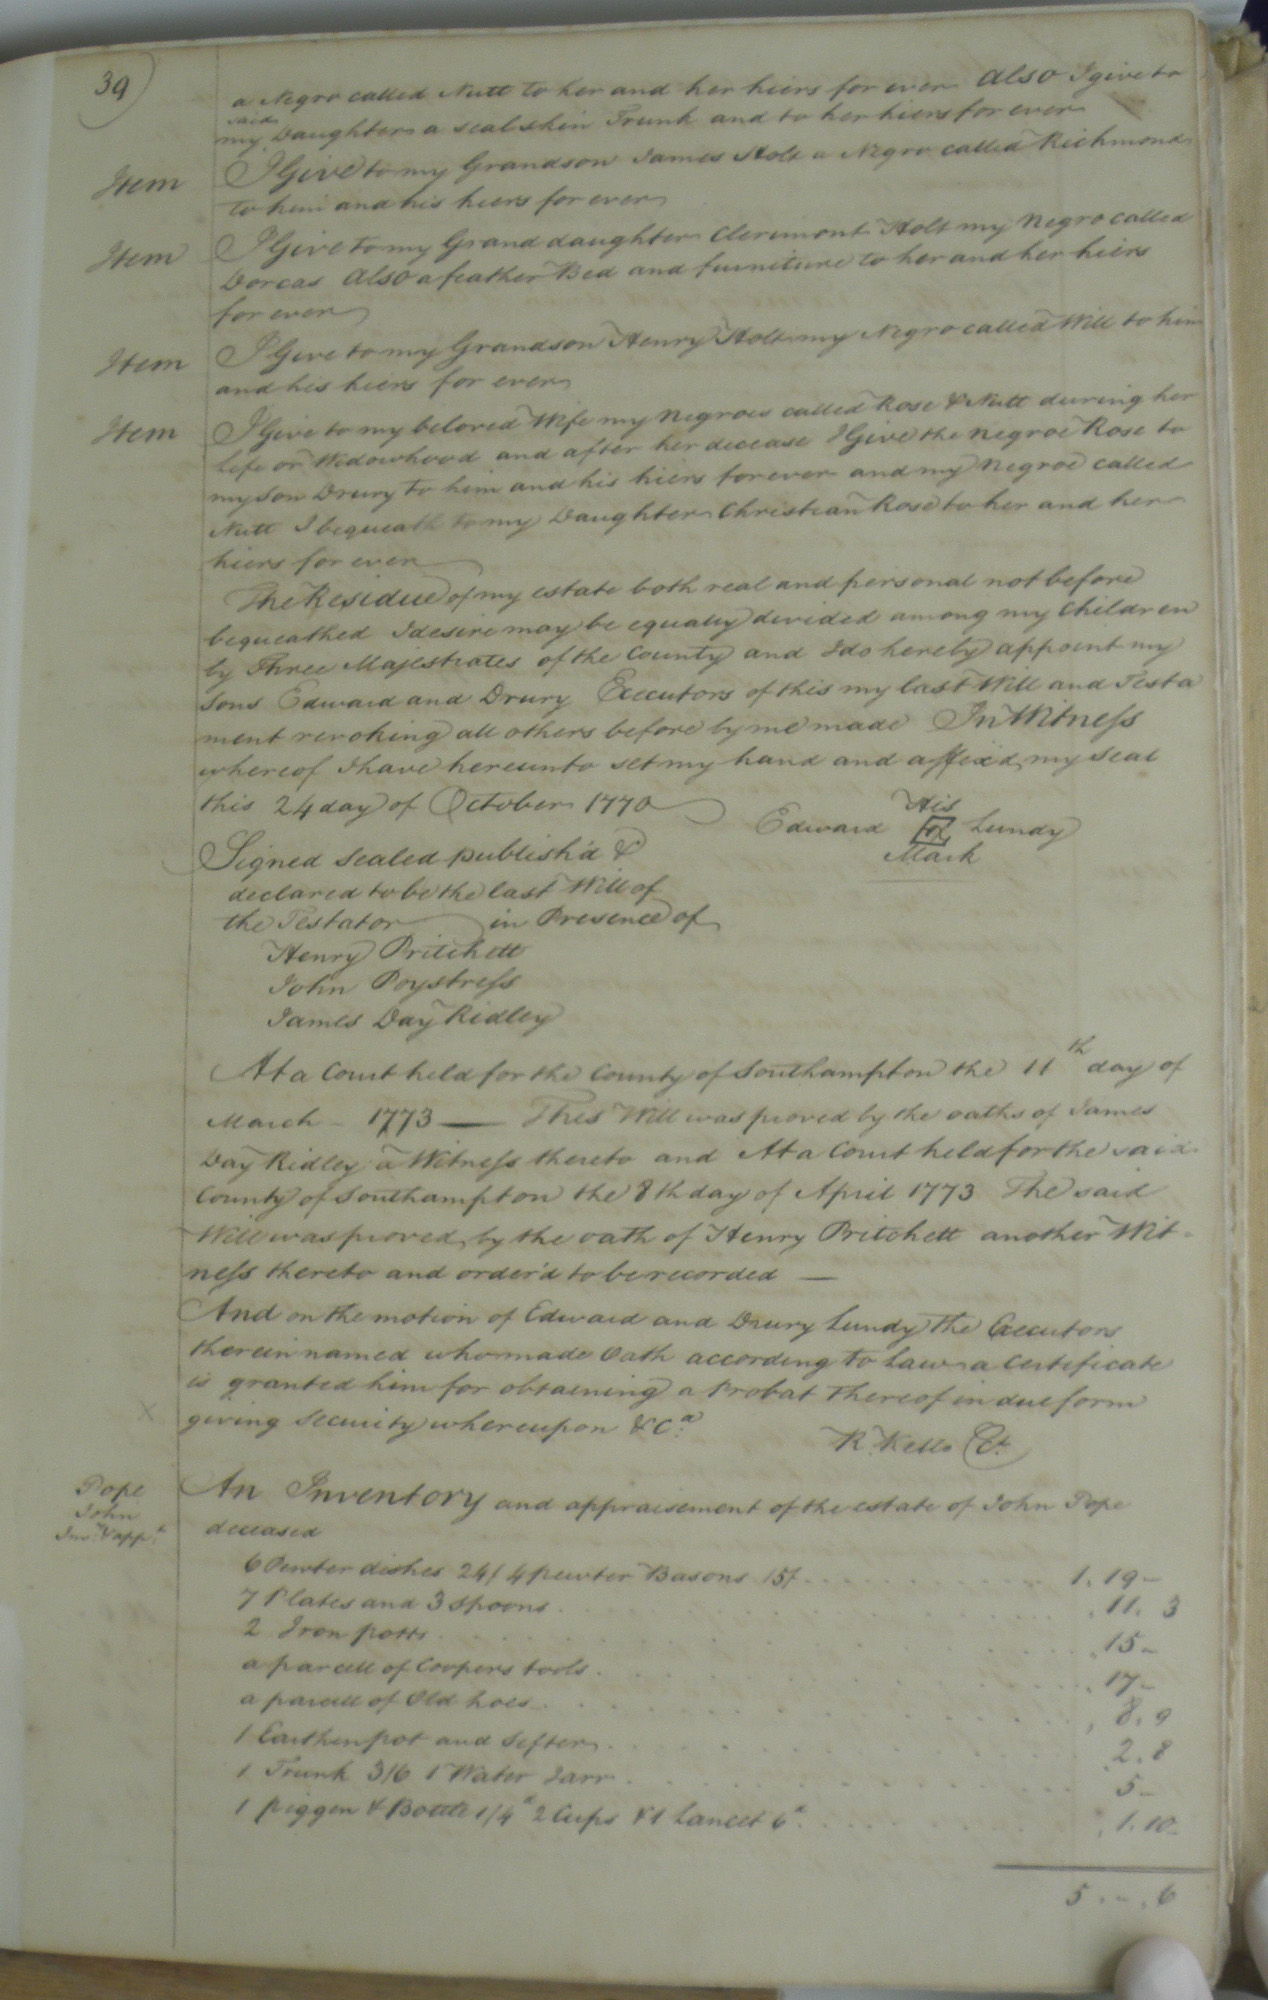 39)
a Negro called Nutt to her and her hiers for ever Also I give to
my said Daughter a seal skin Trunk and to her hiers for ever
Item I Give to my Grandson James Holt a Negro called Richmond
to him and his hiers for ever
Item I Give to my Grand daughter Clerimont Holt my Negro called
Dorcas Also a feather Bed and furniture to her and her hiers
for ever
Item I Give to my Grandson Henry Holt my Negro called Will to him
and his hiers for ever
Item I Give to my beloved Wife my Negroes called Rose & Nutt during her
life or Widowhood and after her decease I Give the Negroe Rose to
my Son Drury to him and his hiers forever and my Negroe called
Nutt I bequeath to my Daughter Christian Rose to her and her
hiers for ever
The Residue of my estate both real and personal not before
bequeathed I desire may be equally devided among my Children
by Three Majestrates of the County and I do hereby appoint my
Sons Edward and Drury Executors of this my last Will and Testa
ment revoking all others before by me made In Witness
whereof I have hereunto set my hand and affixd my Seal
this 24 day of October 1770
His
Edward Lundy
Mark
Signed Sealed publish'd &
declared to be the last Will of
the Testator in Presence of
Henry Pritchett
John Poystress
James Day Ridley
At a Court held for the County of Southampton the 11th day of
March - 1773 — This Will was proved by the oaths of James
Day Ridley a Witness thereto and At a Court held for the said
County of Southampton the 8th day of April 1773 The said
Will was proved by the oath of Henry Pritchett another Wit-
ness thereto and order'd to be recorded —
And on the motion of Edward and Drury Lundy the Executors
therein named who made Oath according to Law a Certificate
is granted him for obtaining a Probat thereof in due form
giving Security whereupon &Ca.
R. Kello Ct.
Pope
John
Inv. & appt.
An Inventory and appraisement of the estate of John Pope
deceased
6 Pewter dishes 24/ 4 pewter Basons 15/ 1. 19 -
7 Plates and 3 spoons 11. 3
2 Iron potts 15 -
a parcell of Coopers tools 17 -
a parcell of Old hoes 8. 9
1 Earthen pot and Sifter 2. 8
1 Trunk 3/6 1 Water Jarr 5 -
1 piggen & Bottle 1/4 2 Cups & 1 Lancet 6d 1. 10
5. -. 6